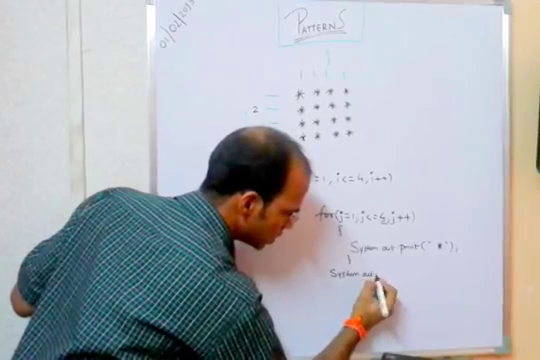 01/02/2013
PATTERNS
* * * *
2 * * * *
* * * *
* * * *
=1, i<=4, i++)
for(j=1, j<=4, j++)
{
System out print(" *"),
}
System out